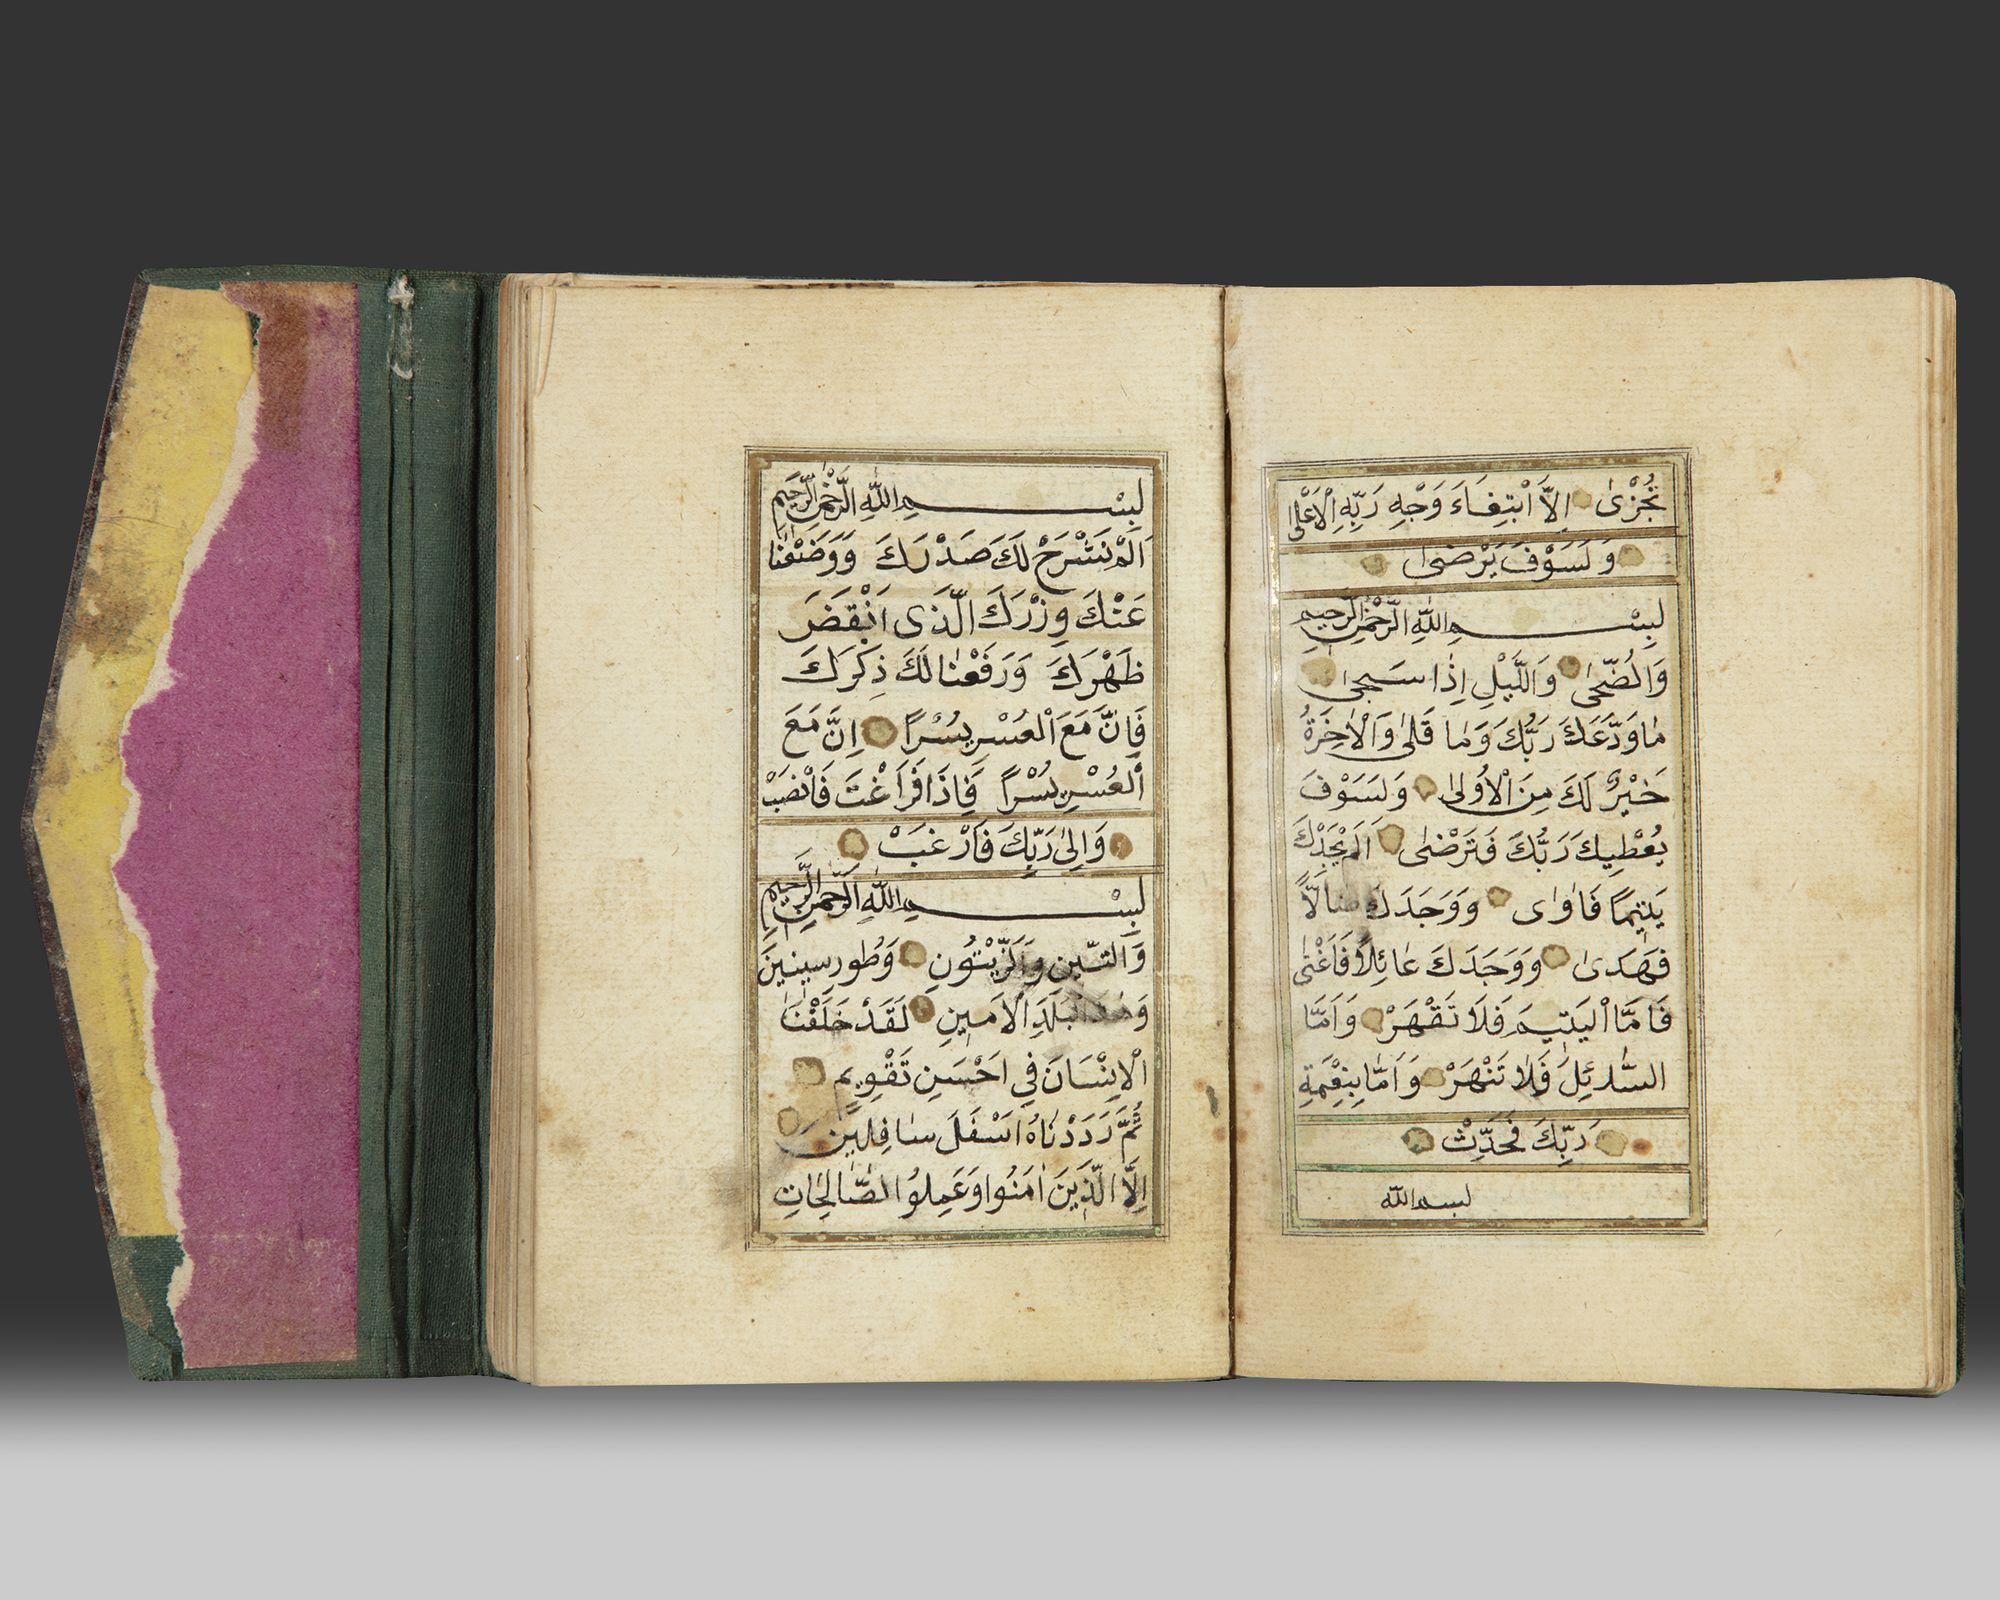 تُجْزٰى اِلَّا ابْتِغَاءَ وَجْهِ رَبِّهِ الْاَعْلٰى
وَلَسَوْفَ يَرْضٰى
بِسْمِ اللّٰهِ الرَّحْمٰنِ الرَّحِيمِ
وَالضُّحٰى وَاللَّيْلِ اِذَا سَجٰى
مَا وَدَّعَكَ رَبُّكَ وَمَا قَلٰى وَالْاٰخِرَةُ
خَيْرٌ لَكَ مِنَ الْاُولٰى وَلَسَوْفَ
يُعْطِيكَ رَبُّكَ فَتَرْضٰى اَلَمْ يَجِدْكَ
يَتِيمًا فَاٰوٰى وَوَجَدَكَ ضَالًّا
فَهَدٰى وَوَجَدَكَ عَائِلًا فَاَغْنٰى
فَاَمَّا الْيَتِيمَ فَلَا تَقْهَرْ وَاَمَّا
السَّائِلَ فَلَا تَنْهَرْ وَاَمَّا بِنِعْمَةِ
رَبِّكَ فَحَدِّثْ
بسم الله
بِسْمِ اللّٰهِ الرَّحْمٰنِ الرَّحِيمِ
اَلَمْ نَشْرَحْ لَكَ صَدْرَكَ وَوَضَعْنَا
عَنْكَ وِزْرَكَ الَّذِى اَنْقَضَ
ظَهْرَكَ وَرَفَعْنَا لَكَ ذِكْرَكَ
فَاِنَّ مَعَ الْعُسْرِ يُسْرًا اِنَّ مَعَ
الْعُسْرِ يُسْرًا فَاِذَا فَرَاغْتَ فَانْصَبْ
وَاِلٰى رَبِّكَ فَارْغَبْ
بِسْمِ اللّٰهِ الرَّحْمٰنِ الرَّحِيمِ
وَالتِّينِ وَالزَّيْتُونِ وَطُورِ سِينِينَ
وَهٰذَا الْبَلَدِ الْاَمِينِ لَقَدْ خَلَقْنَا
الْاِنْسَانَ فِي اَحْسَنِ تَقْوِيمٍ
ثُمَّ رَدَدْنَاهُ اَسْفَلَ سَافِلِينَ
اِلَّا الَّذِينَ اٰمَنُوا وَعَمِلُوا الصَّالِحَاتِ